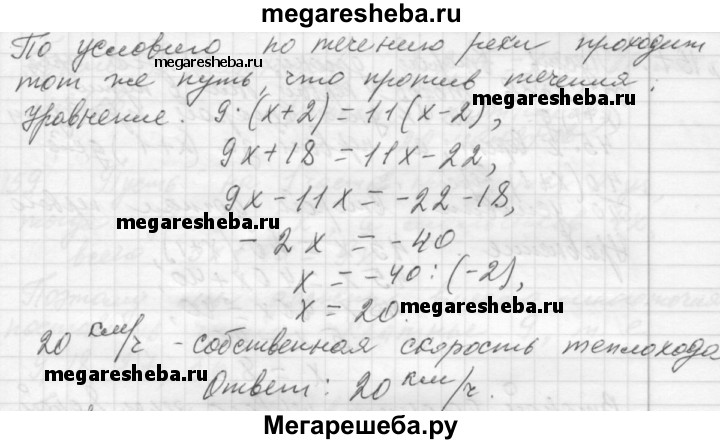 megaresheba.ru
По условию по течению реки проходит
megaresheba.ru
тот же путь, что против течения.
Уравнение. 9·(x+2)=11(x-2),
megaresheba.ru
9x+18=11x-22,
9x-11x=-22-18,
megaresheba.ru
-2x=-40
x=-40:(-2),
x=20.
megaresheba.ru
20 км/ч - собственная скорость теплохода
megaresheba.ru
Ответ: 20 км/ч.
Мегарешеба.ру